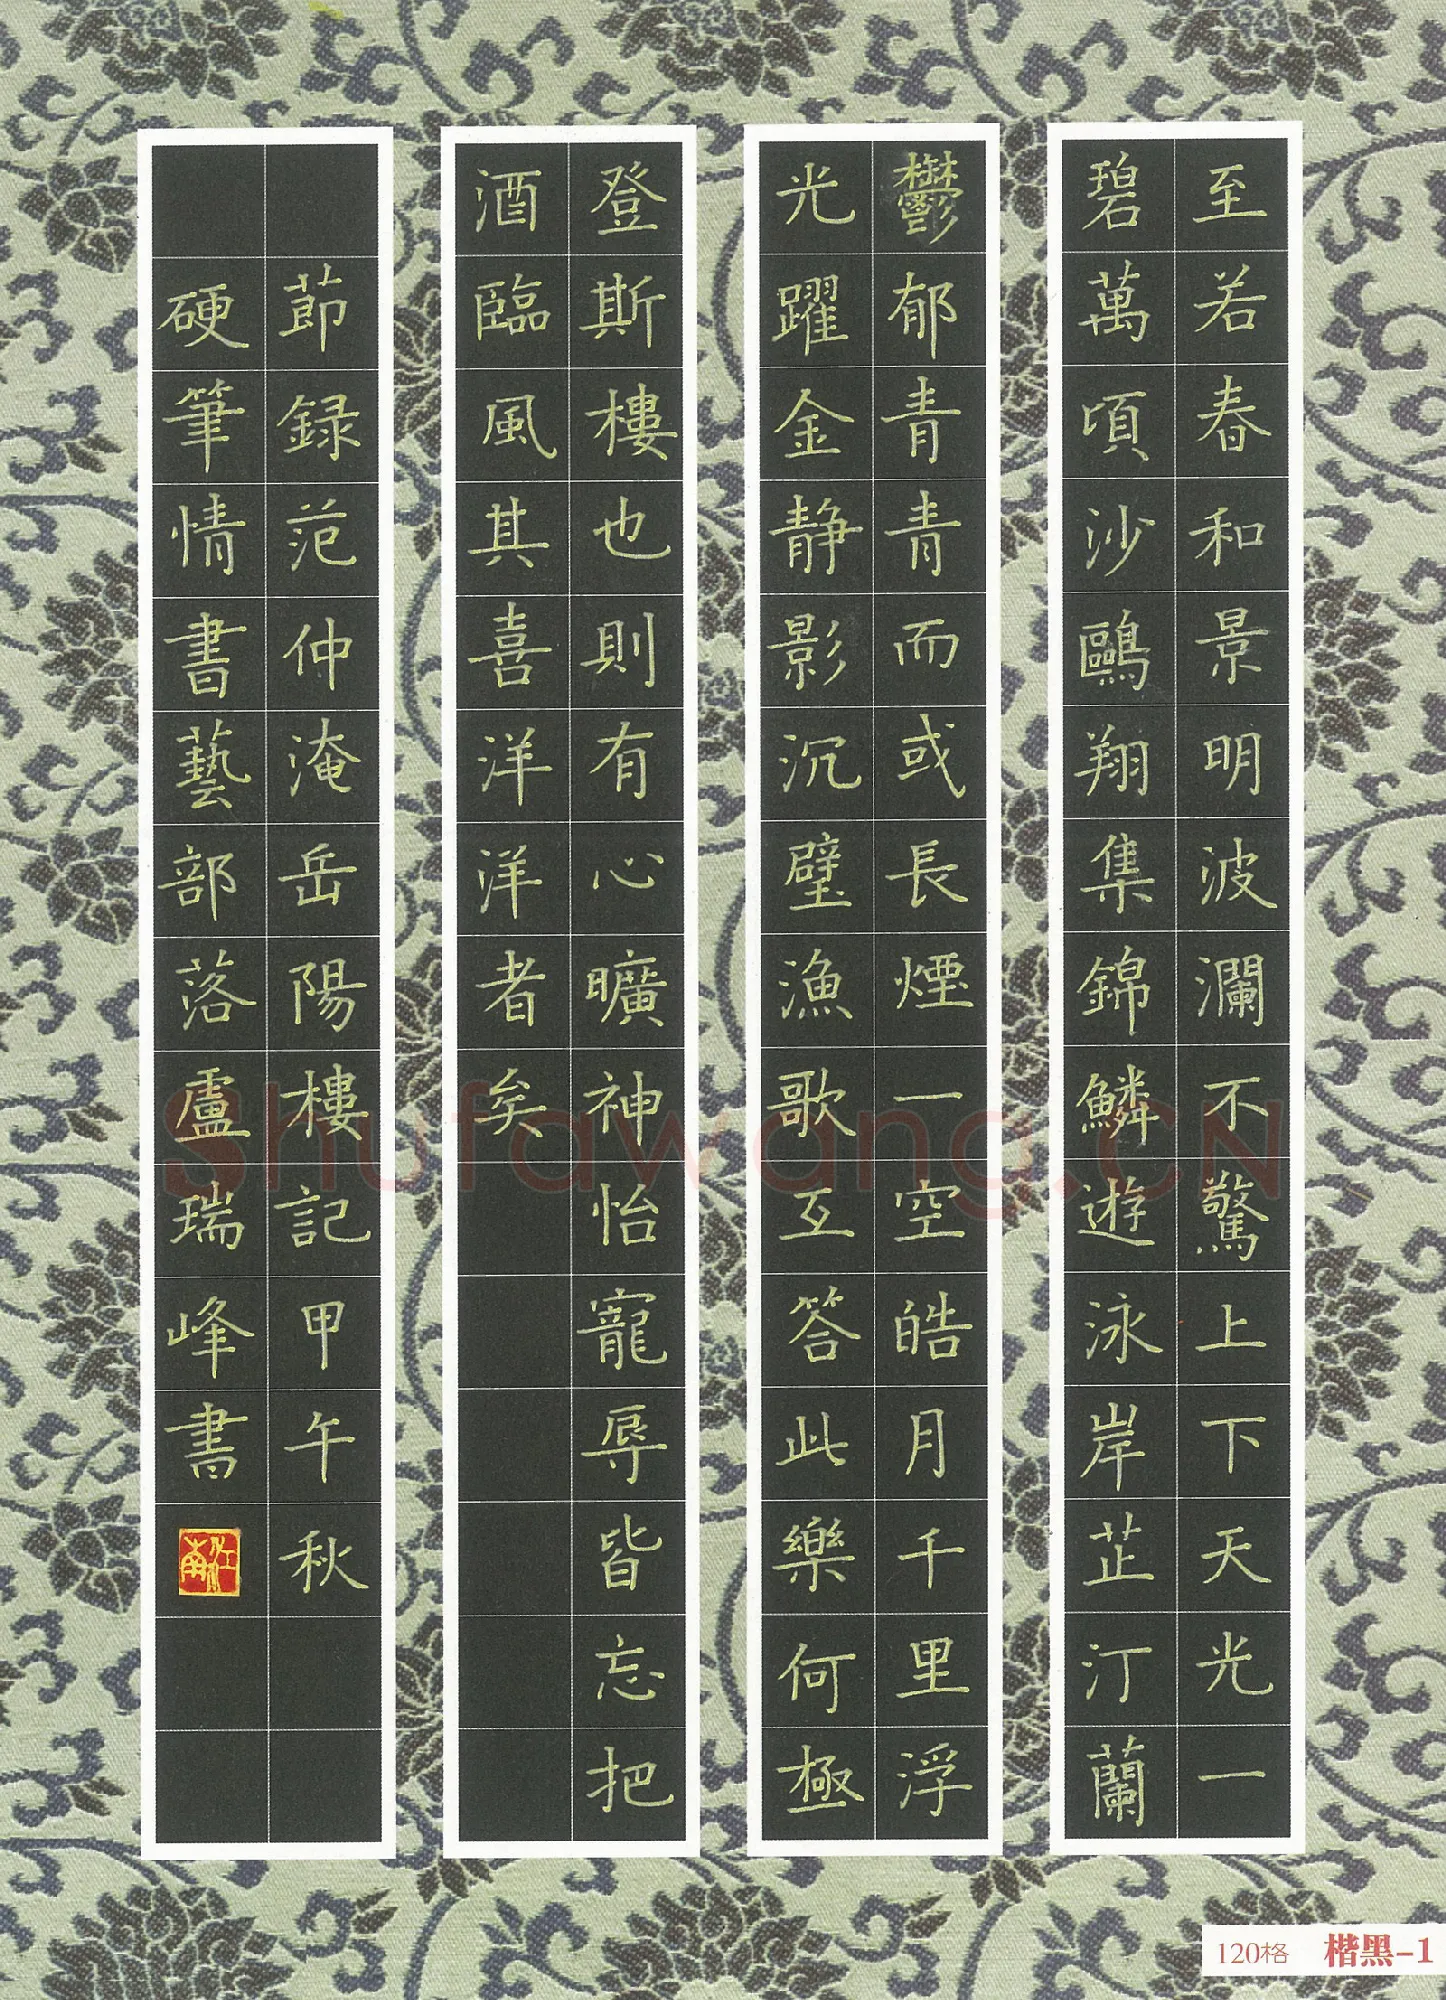 至若春和景明波瀾不驚上下天光一
碧萬頃沙鷗翔集錦鱗遊泳岸芷汀蘭
鬱郁青青而或長煙一空皓月千里浮
光躍金静影沉璧漁歌互答此樂何極
登斯樓也則有心曠神怡寵辱皆忘把
酒臨風其喜洋洋者矣
節録范仲淹岳陽樓記甲午秋
硬筆情書藝部落盧瑞峰書
Shufawang.CN
120格 楷黑-1